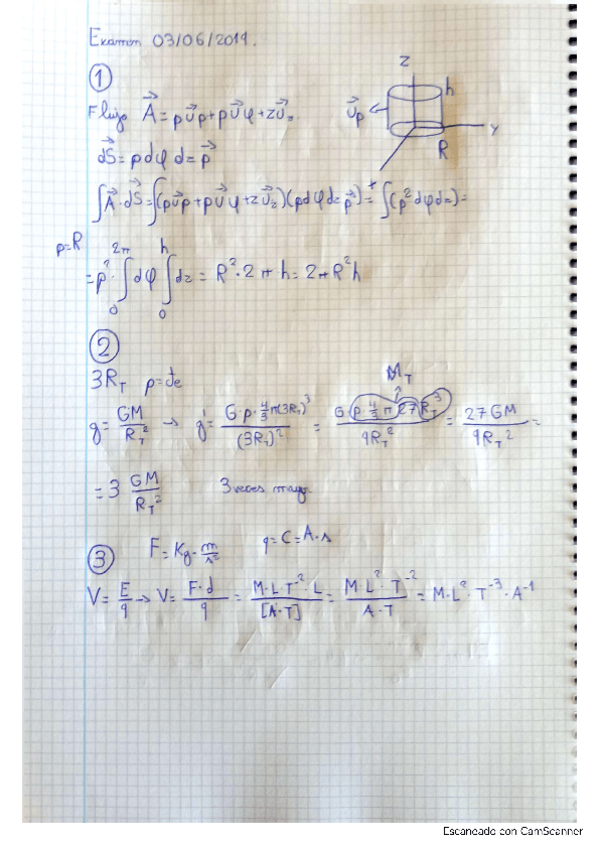 Examen 03/06/2019.
①
z
h
Flujo A⃗ = ρu⃗ρ + ρu⃗φ + zu⃗z
u⃗ρ
y
R
dS⃗ = ρ dφ dz ρ⃗
∫A⃗·dS⃗ = ∫(ρu⃗ρ + ρu⃗φ + zu⃗z)(ρdφdz ρ⃗) = ∫(ρ²dφdz) =
ρ=R
= ρ² ∫₀^2π dφ ∫₀^h dz = R²·2πh = 2πR²h
②
3R_T ρ=cte
M_T
g = GM/R_T² → g' = G·ρ·4/3 π(3R_T)³/(3R_T)² = G·ρ·4/3 π 27 R_T³/9R_T² = 27GM/9R_T² =
= 3 GM/R_T² 3 veces mayor
③ F = Kg·m/s² q = C = A·s
V = E/q → V = F·d/q = M·L·T⁻²·L/[A·T] = M·L²·T⁻²/A·T = M·L²·T⁻³·A⁻¹
Escaneado con CamScanner